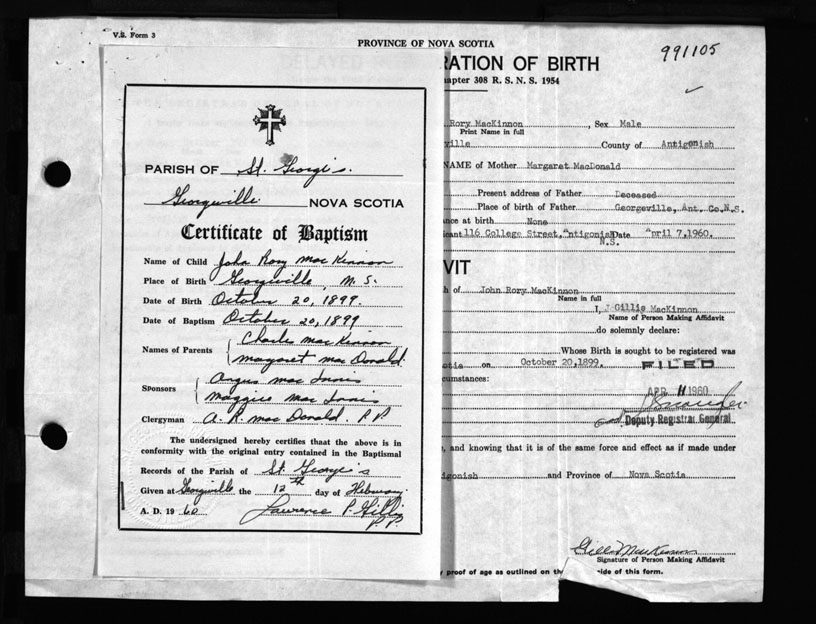 V.S. Form 3
PROVINCE OF NOVA SCOTIA
991105
RATION OF BIRTH
apter 308 R. S. N. S. 1954
PARISH OF St. George's.
Georgeville NOVA SCOTIA
Certificate of Baptism
Name of Child John Rory MacKinnon
Place of Birth Georgeville, N. S.
Date of Birth October 20, 1899.
Date of Baptism October 20, 1899
Names of Parents Charles MacKinnon
Margaret MacDonald.
Sponsors Angus MacInnis
Maggie MacInnis
Clergyman A. R. MacDonald. P.P
The undersigned hereby certifies thaat the above is in
conformity with the original entry contained in the Baptismal
Records of the Parish of St. George's
Given at Georgeville the 12th day of February
A. D. 19 60 Lawrence P. Gillis
P.P.
Rory MacKinnon, Sex Male
Print Name in full
ville County of Antigonish
NAME of Mother Margaret MacDonald
Present address of Father Deceased
Place of birth of Father Georgeville, Ant. Co. N.S.
nce at birth None
icant 116 College Street, Antigonish Date April 7, 1960.
N.S.
VIT
h of John Rory MacKinnon
Name in full
I, J Gillis MacKinnon
Name of Person Making Affidavit
do solemnly declare:
Whose Birth is sought to be registered was
otia on October 20, 1899.
FILED
cumstances:
APR 11 1960
Deputy Registrar General
, and knowing that it is of the same force and effect as if made under
igonish and Province of Nova Scotia
Gillis MacKinnon
Signature of Person Making Affidavit
y proof of age as outlined on th side of this form.